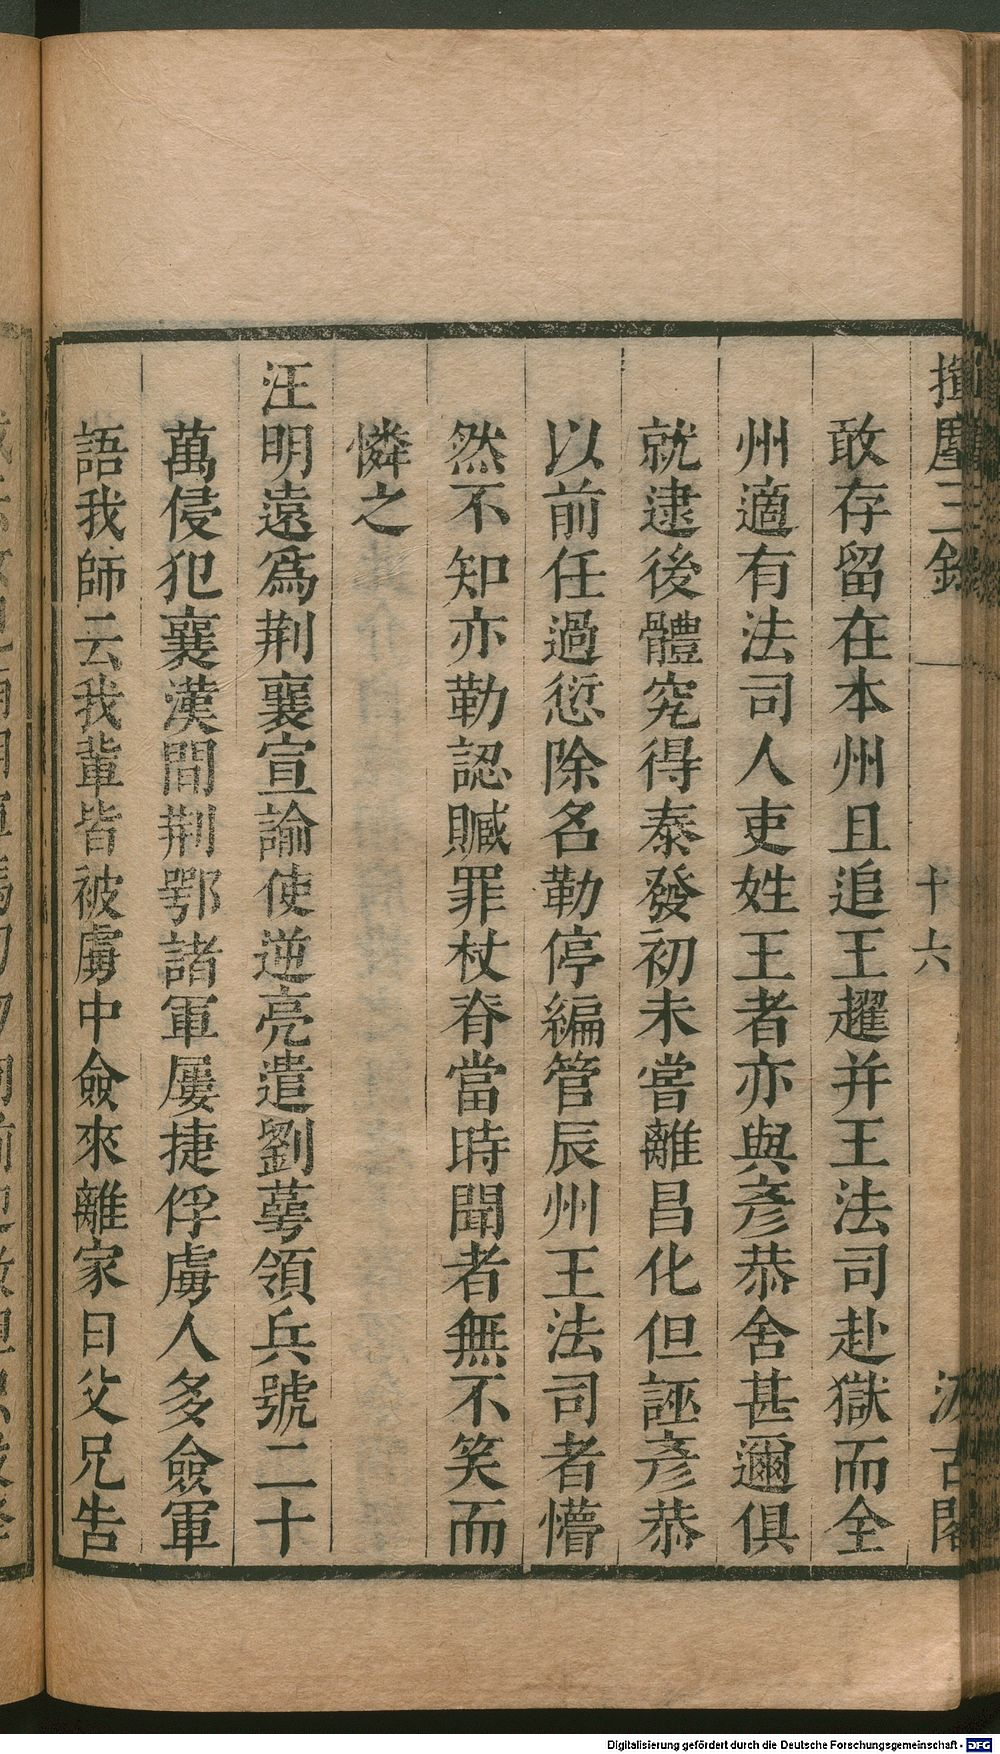 揮麈三錄
十六
汲古閣
敢存留在本州且追王趯并王法司赴獄而全
州適有法司人吏姓王者亦與彥恭舍甚邇俱
就逮後體究得泰發初未嘗離昌化但誣彥恭
以前任過愆除名勒停編管辰州王法司者懵
然不知亦勒認贓罪杖脊當時聞者無不笑而
憐之
汪明遠爲荆襄宣諭使逆亮遣劉萼領兵號二十
萬侵犯襄漢間荆鄂諸軍屢捷俘虜人多僉軍
語我師云我輩皆被虜中僉來離家日父兄告
Digitalisierung gefördert durch die Deutsche Forschungsgemeinschaft - DFG